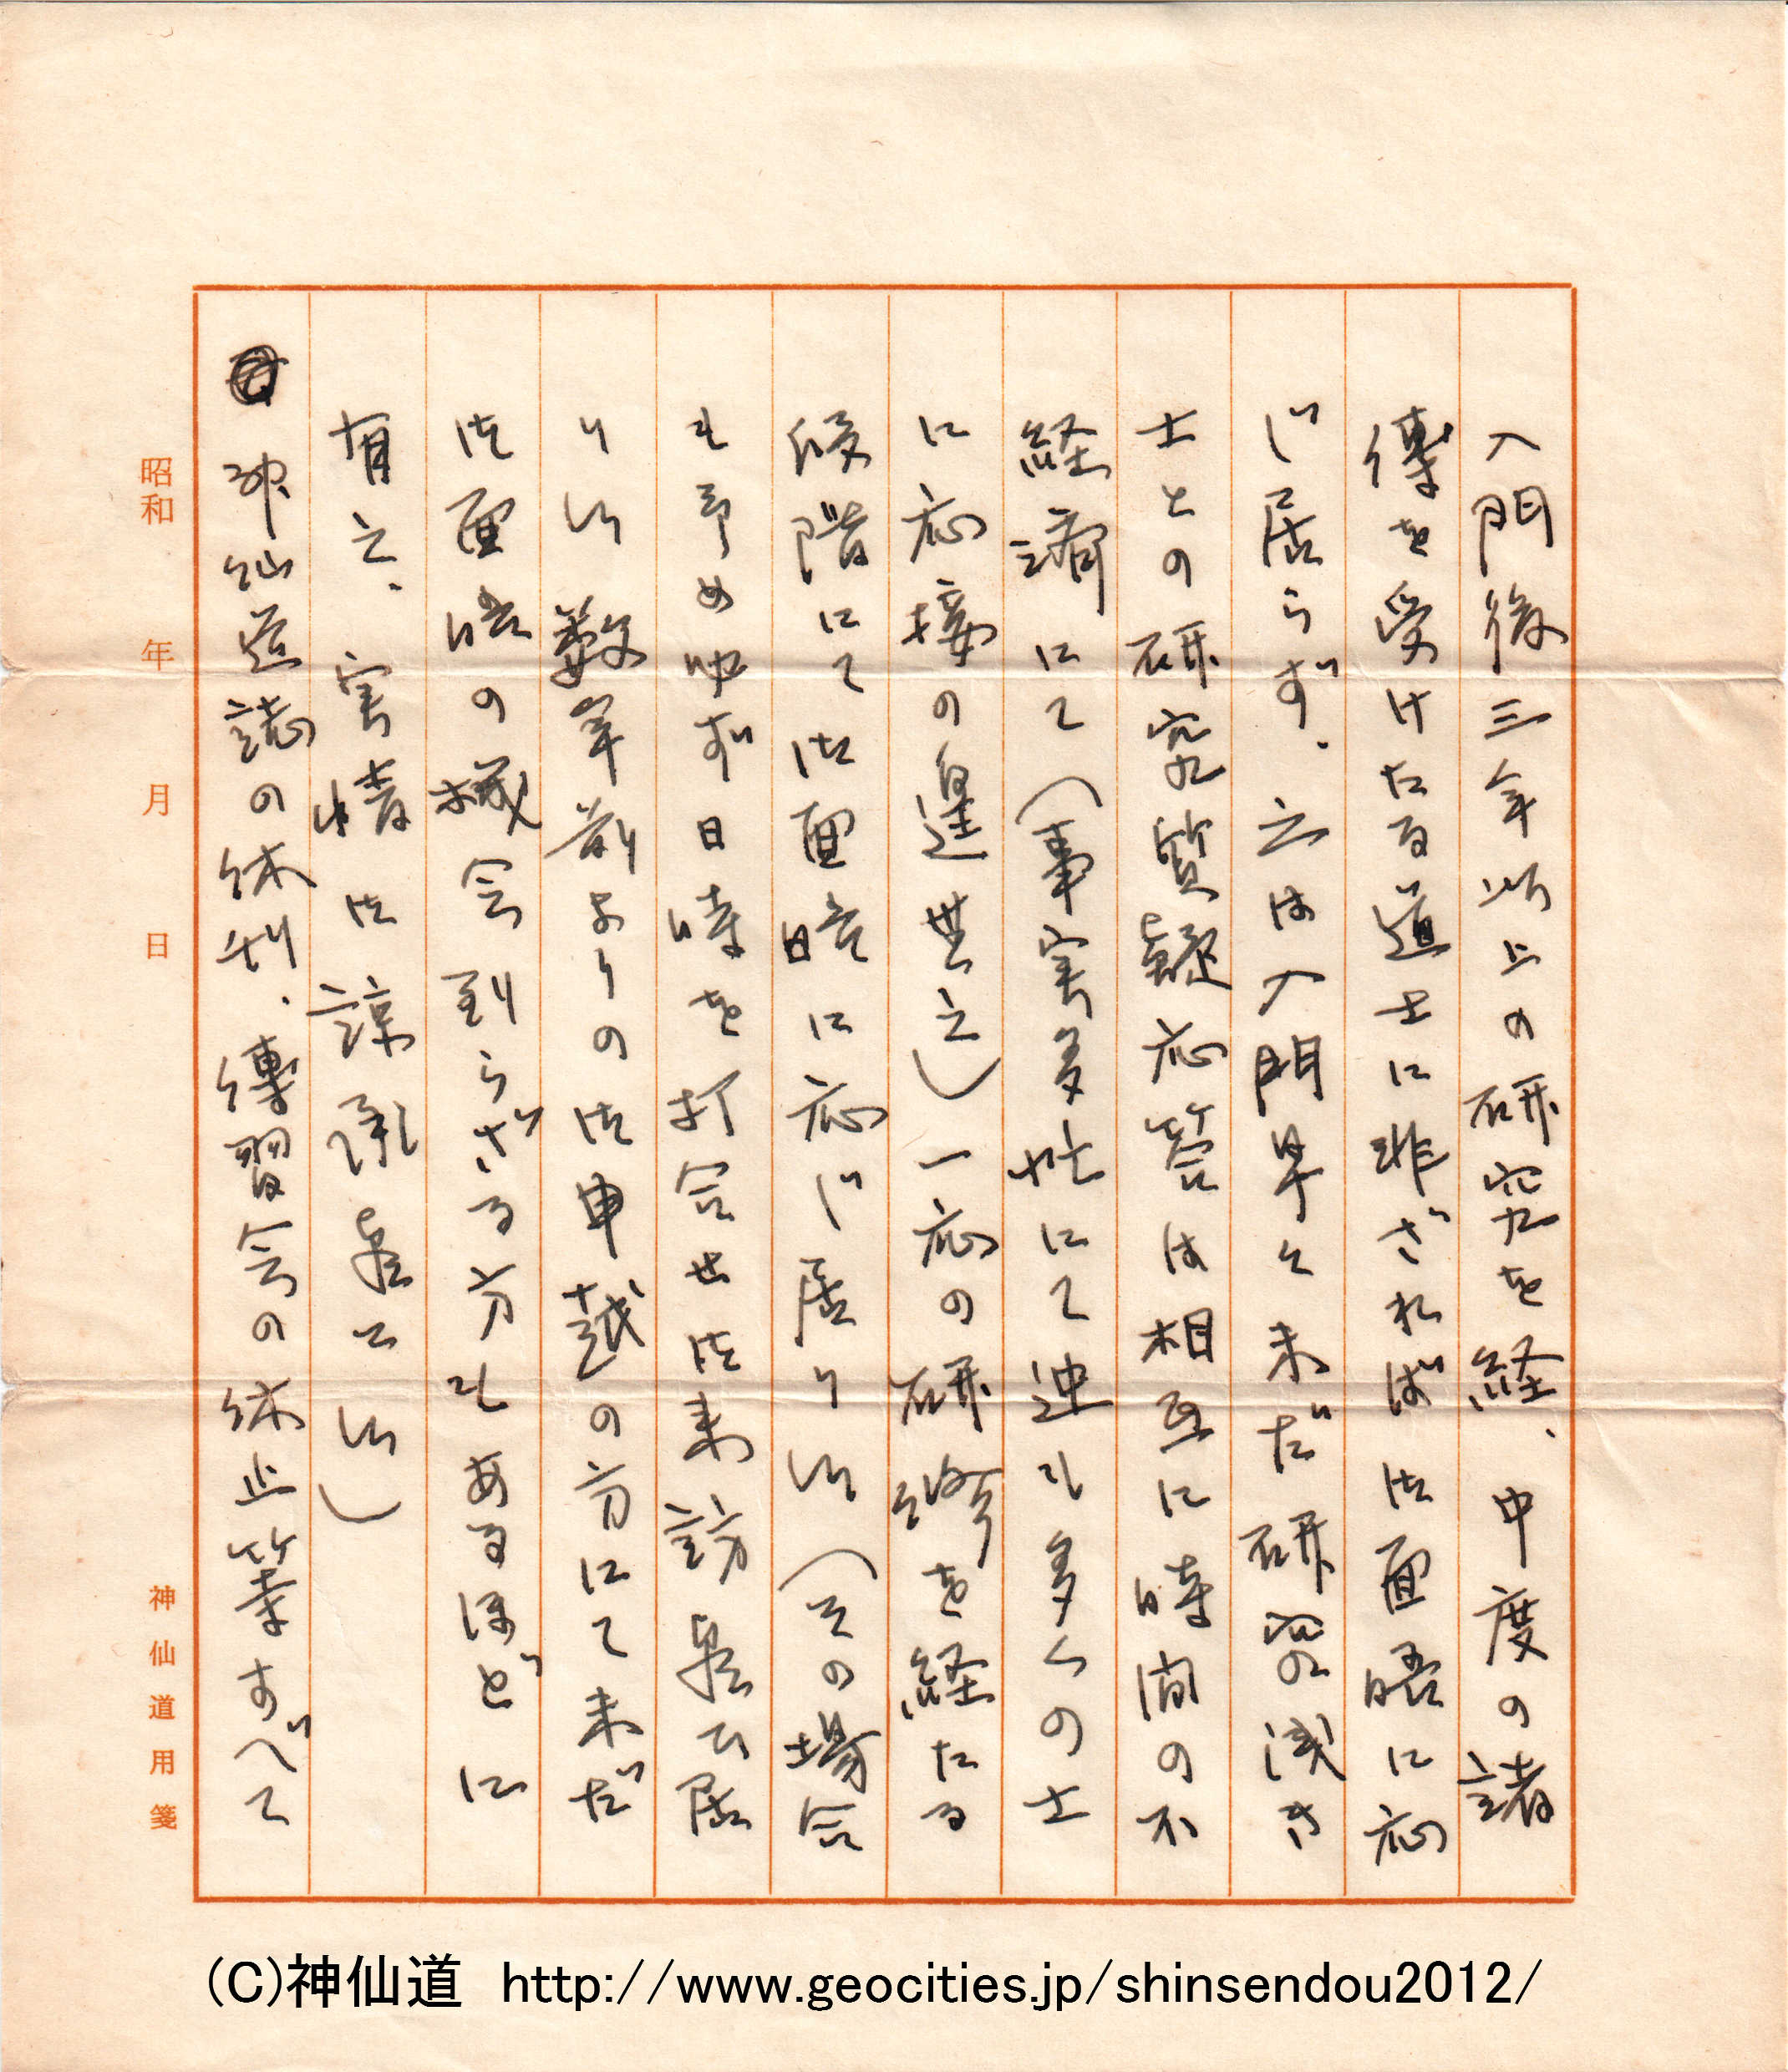 入門後三年以上の研究を経、中度の諸
傳を受けたる道士に非ざれば御面晤に応
じ居らず、之は入門早々未だ研究の浅き
士との研究質疑応答は相互に時間の不
経済にて(事実多忙にて連も多くの士
に応接の遑無之)一応の研修を経たる
段階にて御面晤に応じ居り候(その場合
も予め必ず日時を打合せ御来訪願ひ居
り候 数年前よりの御申越の方にて未だ
御面晤の機会到らざる方もあるほどに
有之、実情御諒承願上候)
神仙道誌の休刊、傳習会の休止等すべて
昭和 年 月 日
神仙道用箋
(C)神仙道 http://www.geocities.jp/shinsendou2012/